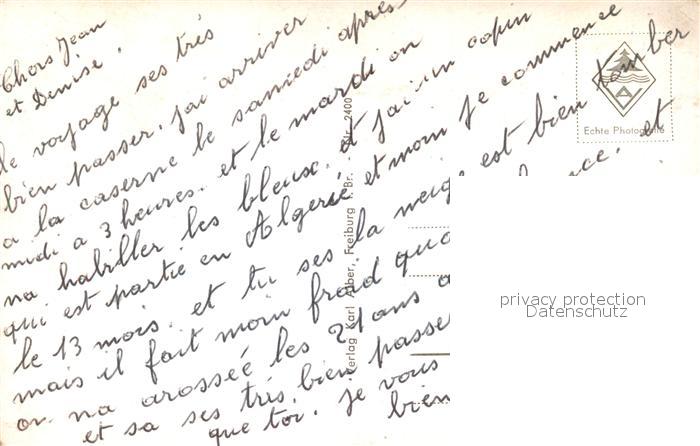 Chers Jean
et Denise.
le voyage ses très
bien passer. j'ai arriver
a la caserne le samedi après
midi a 3 heures. et le mardi on
na habiller les bleus. et j'ai un copin
qui est partie en Algerie et moin je commence
le 13 mois. et tu ses la neige est bien tomber
mais il fait moin froid et
on na arosseé les 21 ans
et sa ses très bien passe
que toi. je vous
bien
Echte Photographie
Verlag Karl Alber, Freiburg i. Br. Nr. 2400
privacy protection
Datenschutz